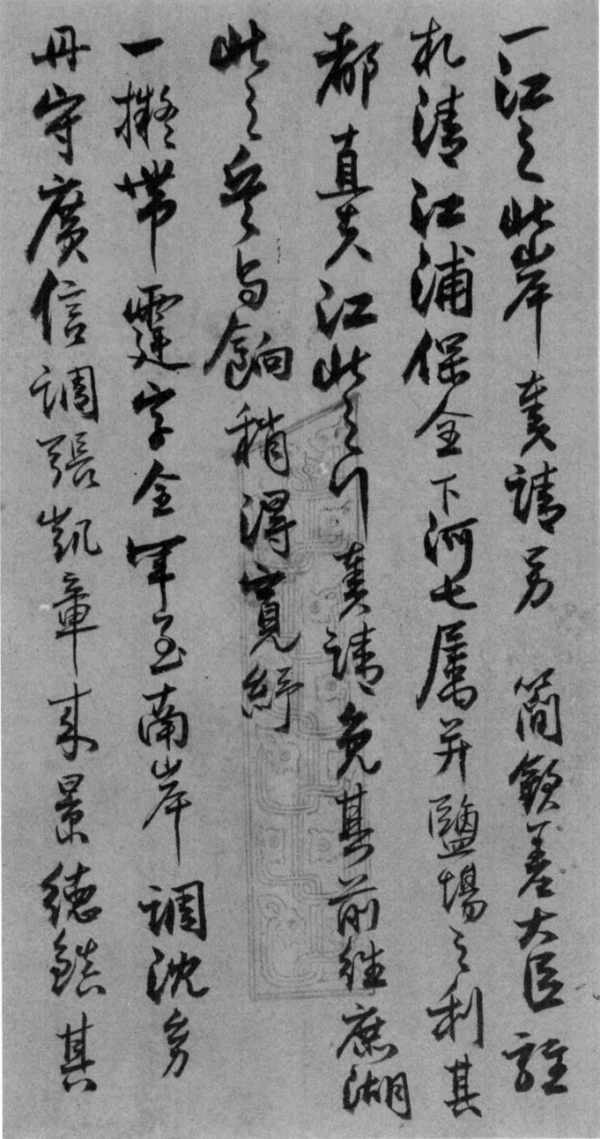 一江之北岸奏請另 簡欽差大臣駐
札清江浦保全下河七属并鹽場之利其
都直夫江北之行奏請免其前往庶湖
北之兵与餉稍得寬紓
一擬帶霆字全軍至南岸調沈幼
丹守廣信調張凱章來景德鎮其